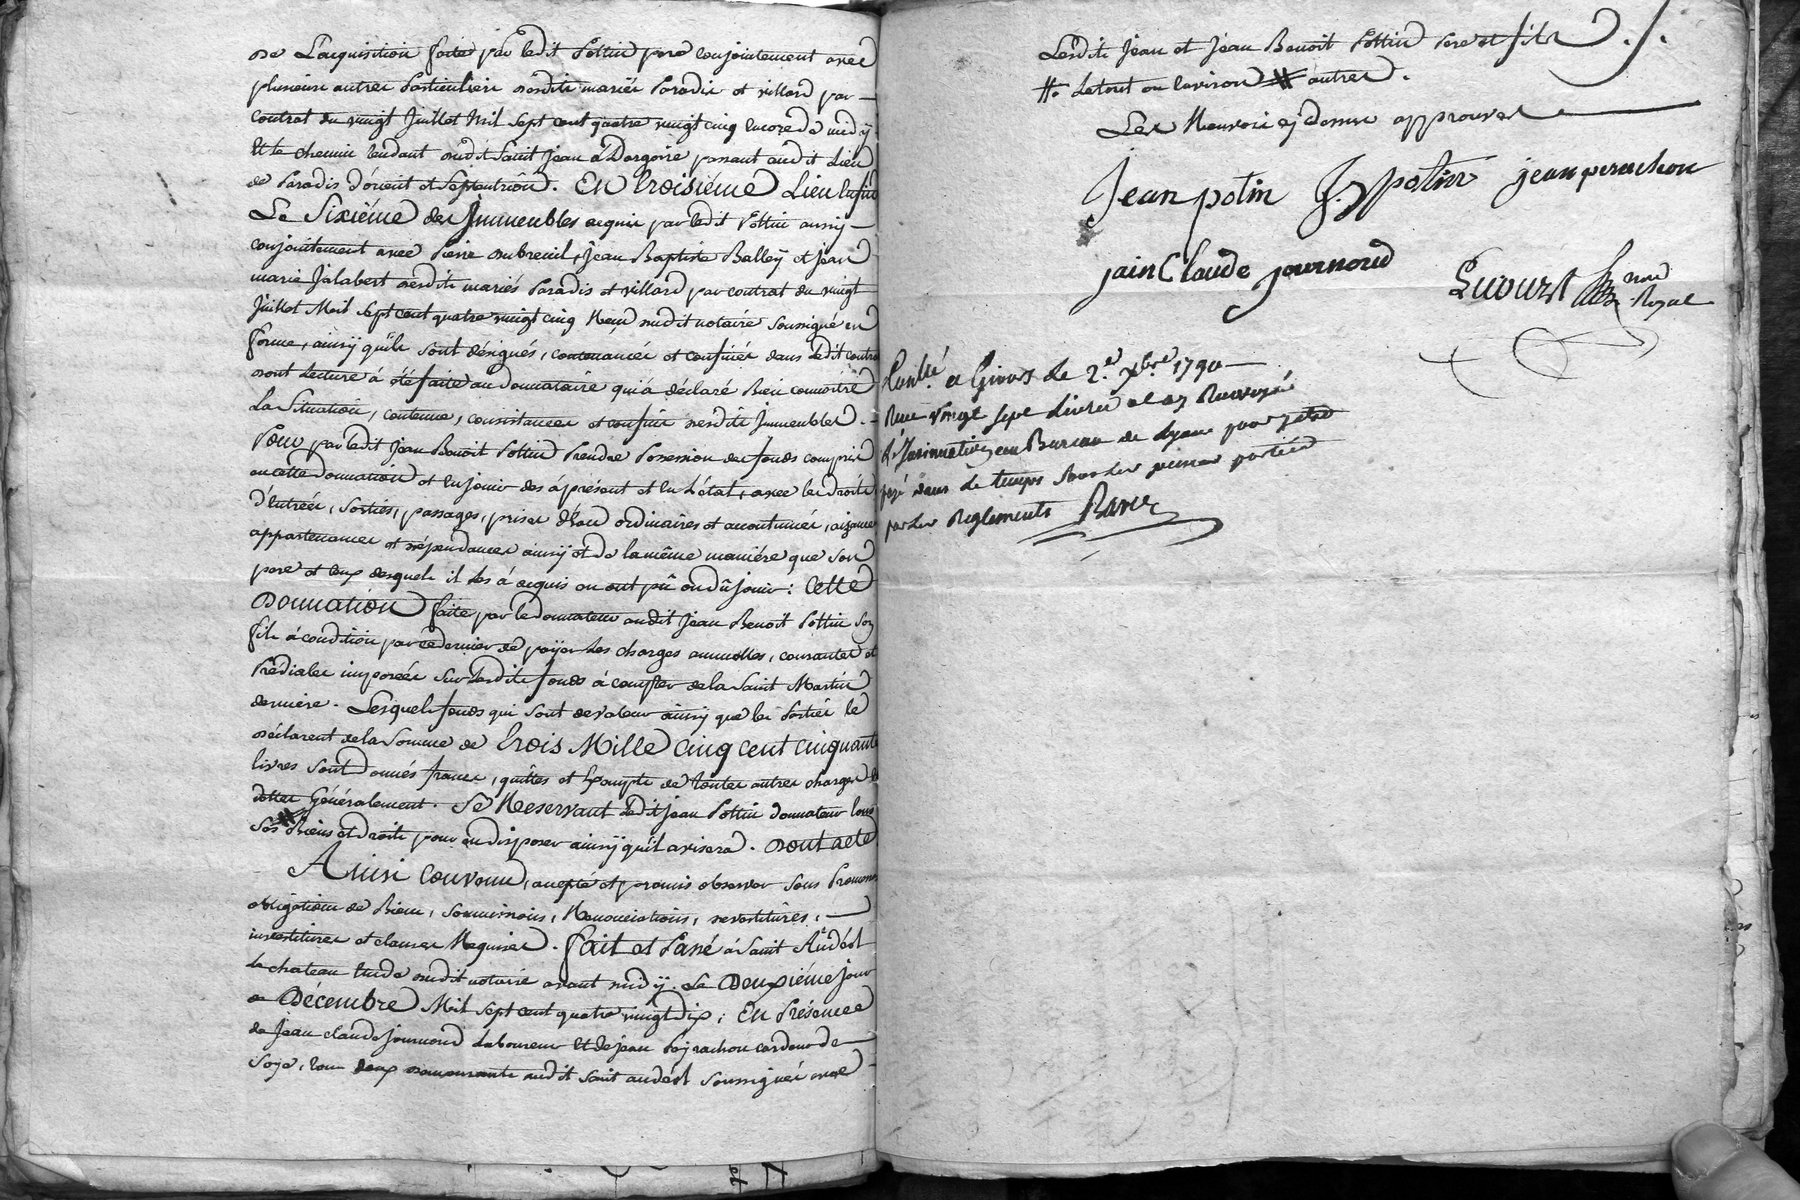 de L'acquisition faite par ledit Pottin pere conjointement avec
plusieurs autres Particuliers desdits mariés Paradis et villard par
contrat du vingt Juillet Mil sept cent quatre vingt cinq encore de midÿ
Et le chemin tendant dudit Saint Jean à Dargoire passant audit Lieu
de Paradis d'orient et Septentrion. En troisième Lieu enfin
Le Sixième des Immeubles acquis par ledit Pottin aussy
conjointement avec Pierre Dubreuil, Jean Baptiste Balleÿ et Jean
marie Jalabert desdits mariés Paradis et villard par contrat du vingt
Juillet Mil sept cent quatre vingt cinq Reçu dudit notaire Soussigné en
forme, ainsÿ qu'ils sont désignés, contenancés et confinés dans ledit contrat
dont Lecture à été faite au donnataire qui à déclaré Bien connoitre
La Situation, contenue, consistance et confins desdits Immeubles.
Pour par ledit Jean Benoit Pottin Prendre Possession des fonds compris
en cette donnation et en jouir dès àprésent et en L'état, avec les droits
d'Entrées, Sorties, passages, prises d'Eau ordinaires et accoutumés, aizances
appartenances et dépendances ainsÿ et de la même manière que son
pere et ceux desquels il les à acquis en ont pû ou dû jouir : Cette
Donnation faite par le donnateur audit Jean Benoit Pottin Son
fils à condition par ce dernier de païer Les charges annuelles, courantes et
Prédiales imposées Sur Lesdits fonds à compter de la Saint Martin
derniere. Lesquels fonds qui sont de valeur ainsÿ que les Parties le
déclarent de la Somme de trois Mille cinq cent cinquante
livres sont donnés francs, quittes et Exempts de toutes autres charges et
dettes Généralement. Se Reservant ledit Jean Pottin donnateur tous
Ses # Biens et droits, pour en disposer ainsÿ qu'il avisera. dont acte
Ainsi Convenu, accepté et promis observer sous
obligations de Biens, Soumissions, Renonciations, devestitures,
investitures et clauses Requises. fait et Passé à Saint Andéol
le chateau Etude dudit notaire avant midÿ. Le Deuxième jour
de Décembre Mil sept cent quatre vingt dix ; En Présence
de Jean claude Journoud Laboureur Et de Jean Peyrachon cardeur de
Soye, tous deux demeurants audit saint andéol soussignés avec
Lesdits Jean et Jean Benoit Pottin Pere et fils ./.
# autres.
Les Renvois cy dessus approuvés
Jean potin J. B potin jean perachon
jain Claude journoud
Lucurst nre Royal
Con.lé à Givors Le 2.e Xbre 1790
Reçu vingt sept livres et a Renvoyé
L'Insinuation au Bureau de Lyon pour y etre
payé dans le temps sous les peines portées
par les Reglements